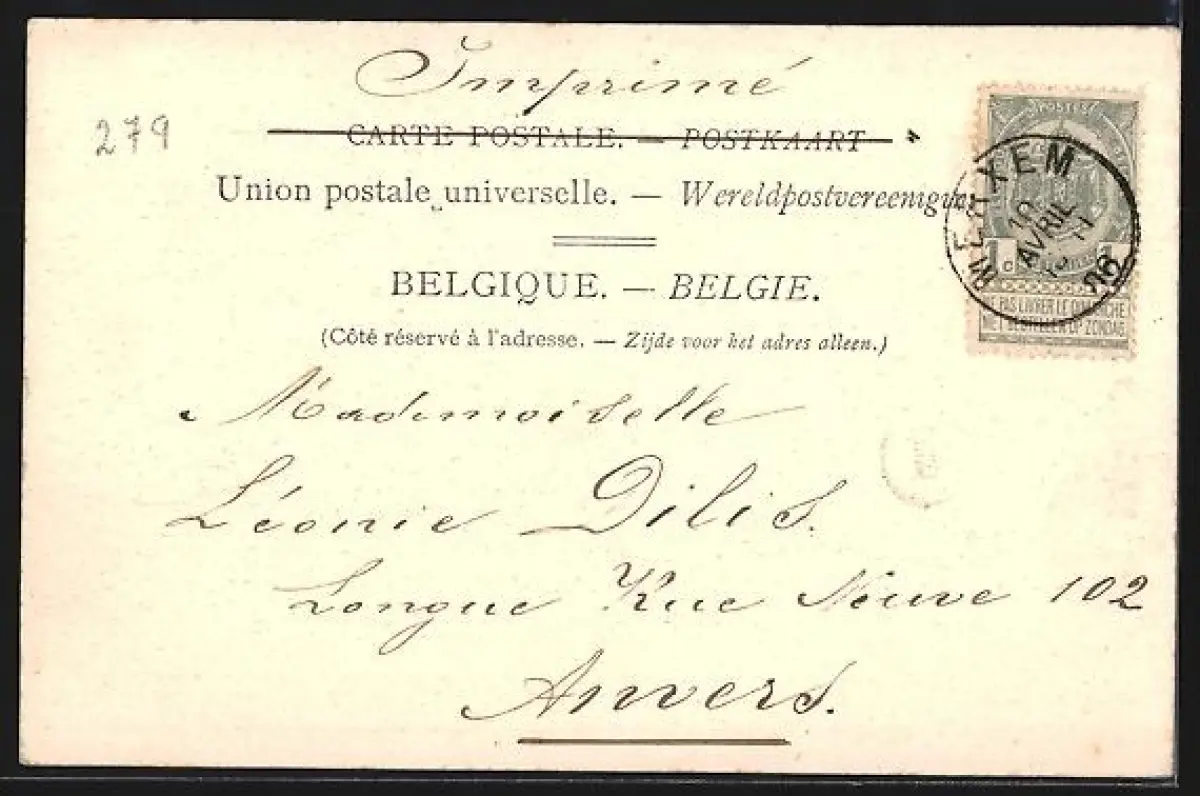 Imprimé
279
CARTE POSTALE. — POSTKAART
Union postale universelle. — Wereldpostvereeniging
BELGIQUE. — BELGIE.
(Côté réservé à l'adresse. — Zijde voor het adres alleen.)
POSTES
1c 1c
NE PAS LIVRER LE DIMANCHE
NIET BESTELLEN OP ZONDAG
MERXEM
10
AVRIL
06
Mademoiselle
Léonie Dilis.
Longue Rue Neuve 102
Anvers.